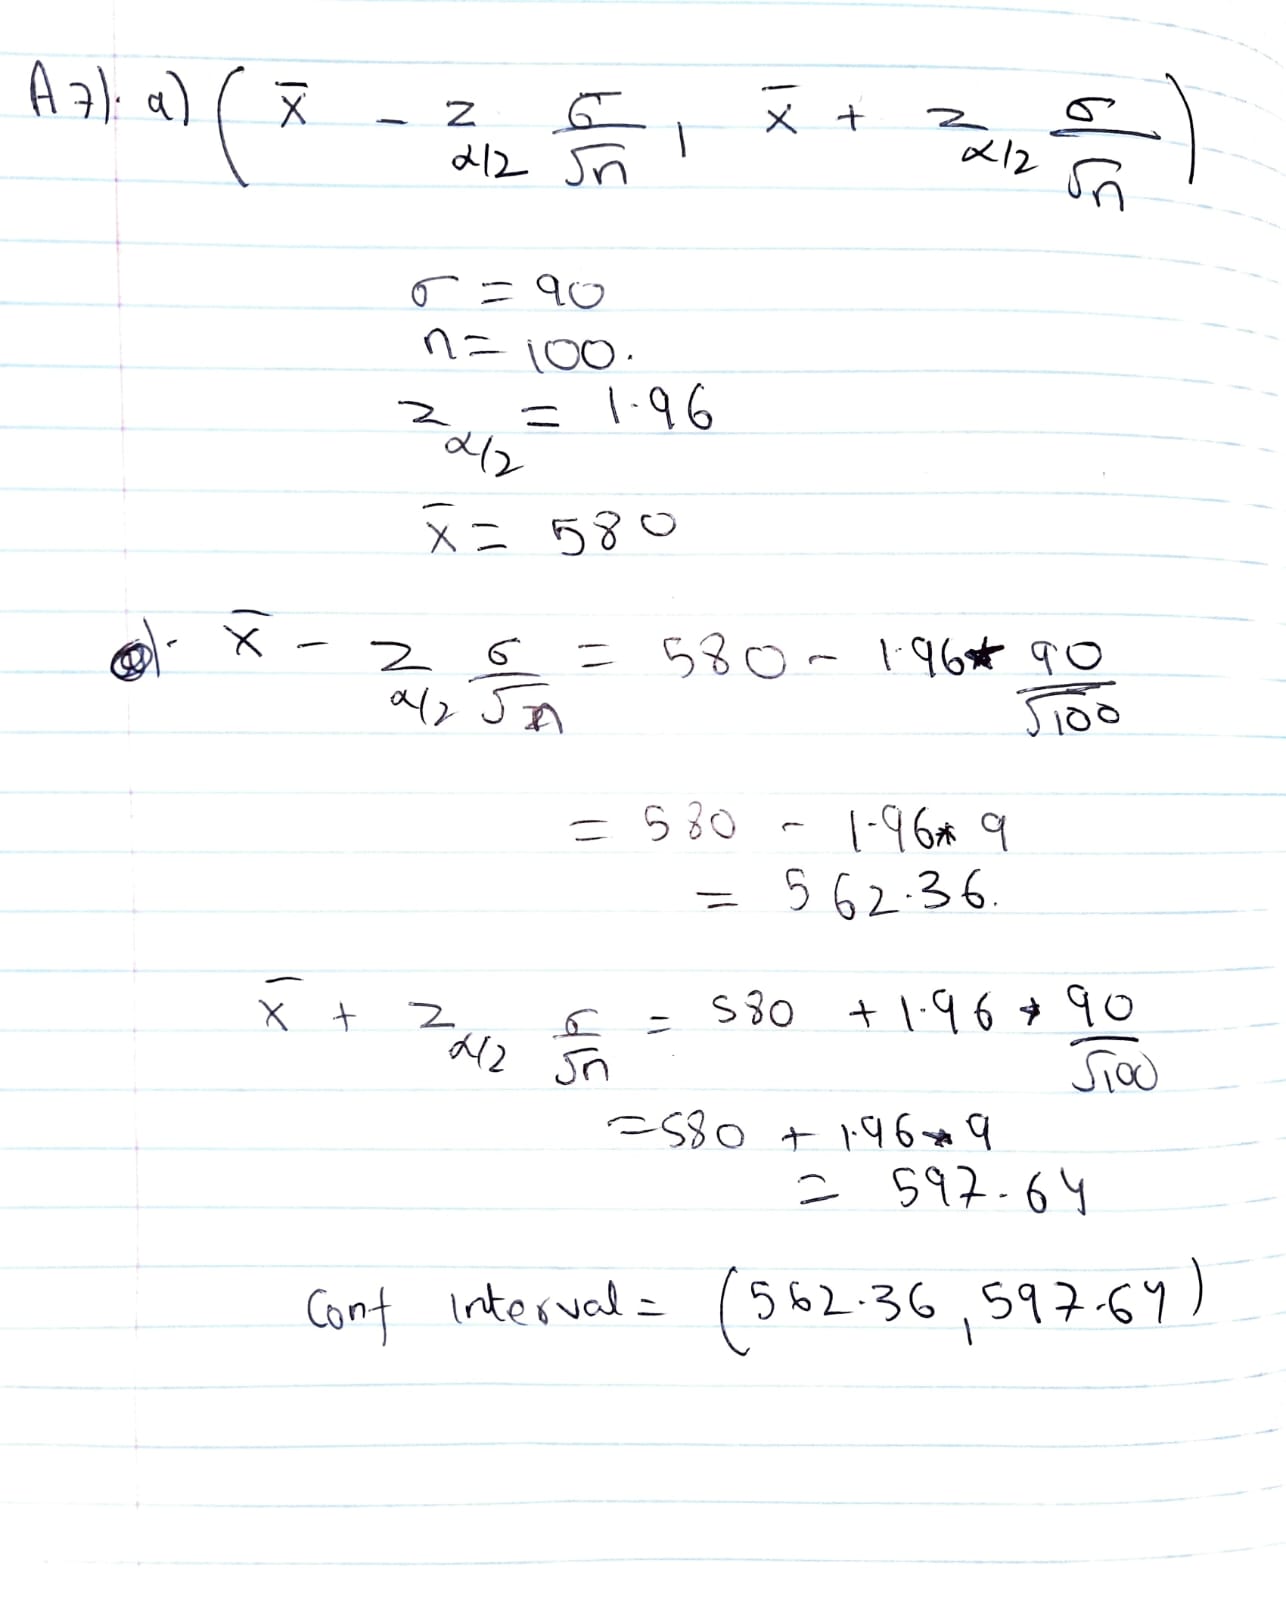 A7). a) ( x̄ - z α/2 σ/√n , x̄ + z α/2 σ/√n )
σ = 90
n = 100.
z α/2 = 1.96
x̄ = 580
x̄ - z α/2 σ/√n = 580 - 1.96 * 90/√100
= 580 - 1.96 * 9
= 562.36.
x̄ + z α/2 σ/√n = 580 + 1.96 * 90/√100
= 580 + 1.96 * 9
= 597.64
Conf Interval = (562.36, 597.64)